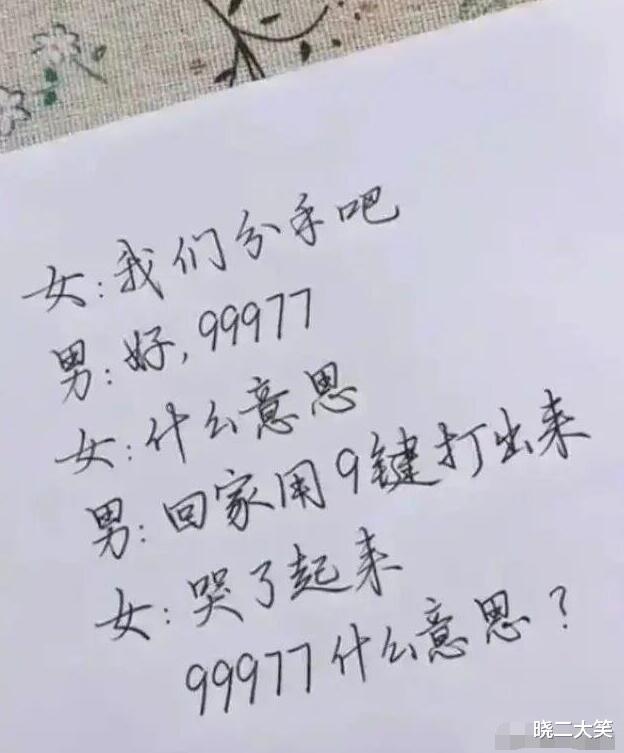 女:我们分手吧
男:好,99977
女:什么意思
男:回家用9键打出来
女:哭了起来
99977什么意思?
晓二大笑